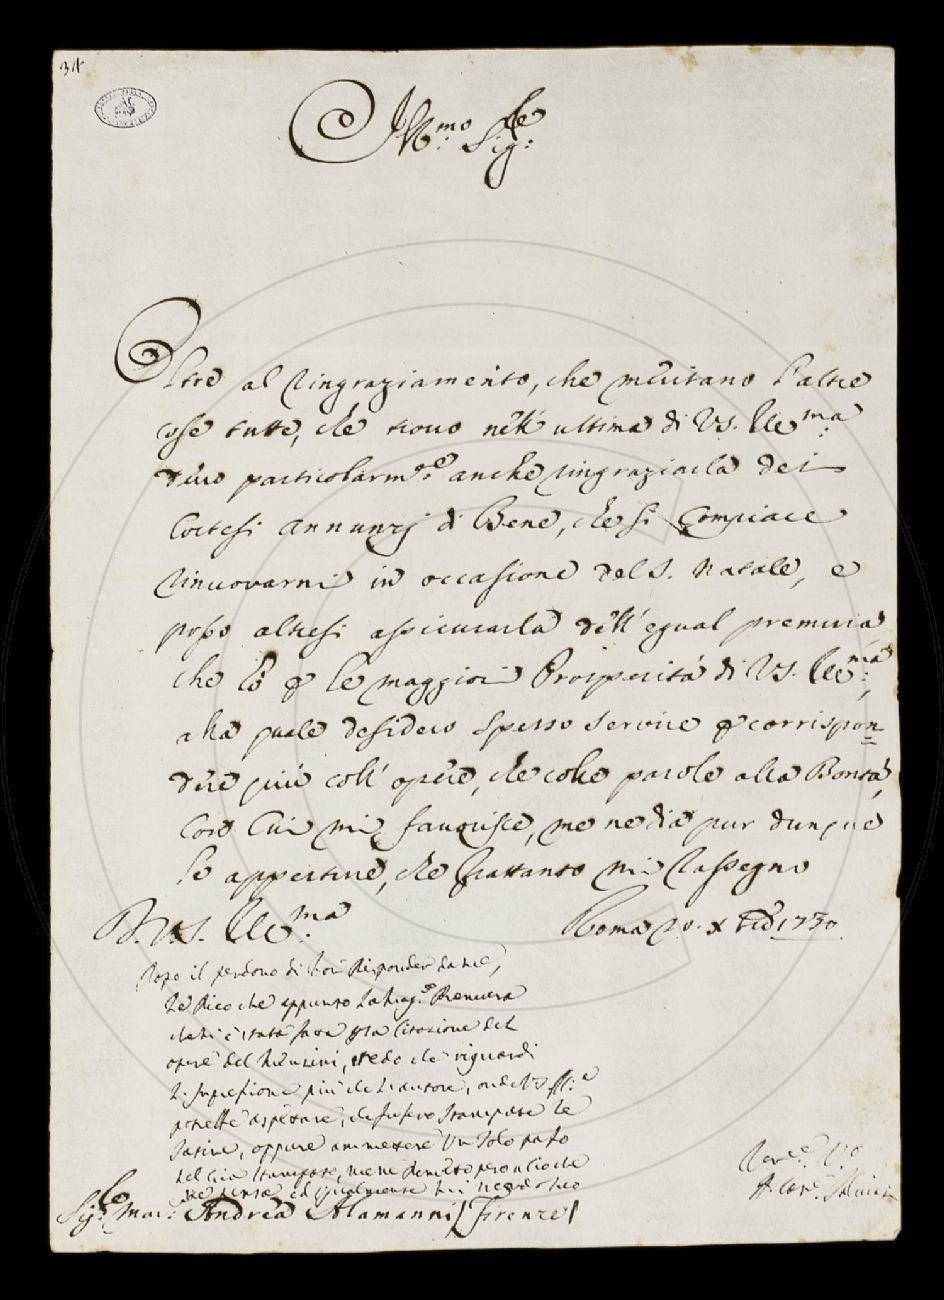 34
Ill.mo Sig.re
Oltre al ringraziamento, che meritano l'altre
cose tutte, che trovo nell'ultima di VS. Ill.ma
devo particolarm.te anche ringraziarla dei
Cortesi annunzj di Bene, che si compiace
rinuovarmi in occasione del S. Natale, e
posso altresi assicurarla dell'egual premura
che ho p le maggiori Prosperità di VS. Ill.ma,
alla quale desidero spesso servire p corrispon=
dere più coll'opere, che colle parole alla Bontà,
con cui mi favorisce, me ne dia pur dunque
le apperture, che frattanto mi rassegno
D.V.S. Ill.ma
Roma 20. Xbre 1730
Dopo il perdono di non Risponder da me,
Le Dico che appunto la Premura
che mi è stata fatta p la Citazione del
opere del Menzini, credo che riguardi
l'Impressione più che l'autore, onde VS Ill.ma
potrebbe aspettare, che fussero stampate le
Satire, oppure ammettere Un solo passo
delle già stampate, me ne rimetto però a ciò che
ne pensa ed ugualmente
Sig.re Mar. Andrea Alamanni [Firenze]
A. Salvini